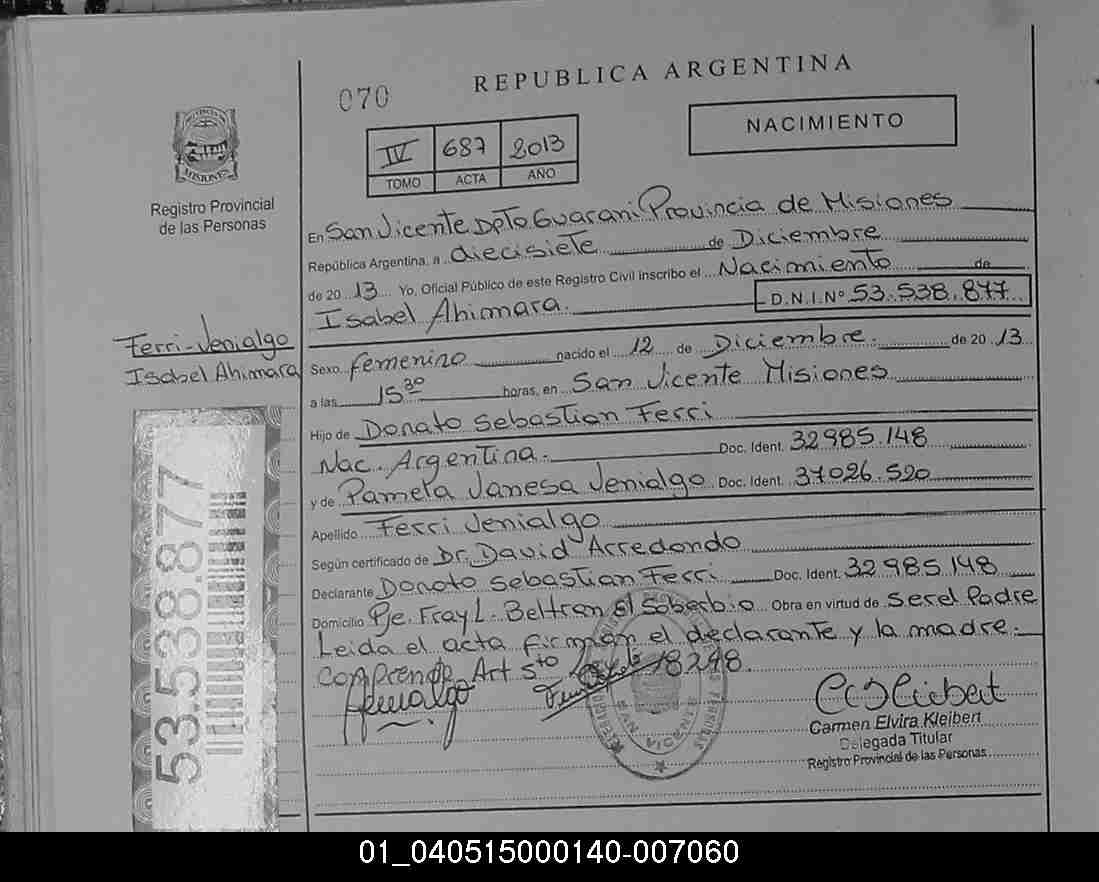 070
REPUBLICA ARGENTINA
NACIMIENTO
IV 687 2013
TOMO ACTA AÑO
PROVINCIA DE
MISIONES
Registro Provincial
de las Personas
En San Vicente Dpto Guarani Provincia de Misiones
República Argentina, a diecisiete de Diciembre
de 20 13 Yo, Oficial Público de este Registro Civil inscribo el Nacimiento de
Isabel Ahimara. D.N.I.Nº 53.538.877
Ferri-Venialgo
Isabel Ahimara
Sexo femenino nacido el 12 de Diciembre. de 20 13
a las 15 30 horas, en San Vicente Misiones
Hijo de Donato Sebastian Ferri
Nac. Argentina. Doc. Ident. 32985.148
y de Pamela Vanesa Venialgo Doc. Ident. 37026.520
Apellido Ferri Venialgo
Según certificado de Dr. David Arredondo
Declarante Donato Sebastian Ferri Doc. Ident. 32985148
Domicilio Pje. Fray L. Beltran El Soberbio Obra en virtud de Ser el Padre
Leida el acta firman el declarante y la madre.
Comprende Art 5to Ley 18248.
53.538.877
SAN VICENTE
Carmen Elvira Kleibert
Delegada Titular
Registro Provincial de las Personas
01_040515000140-007060